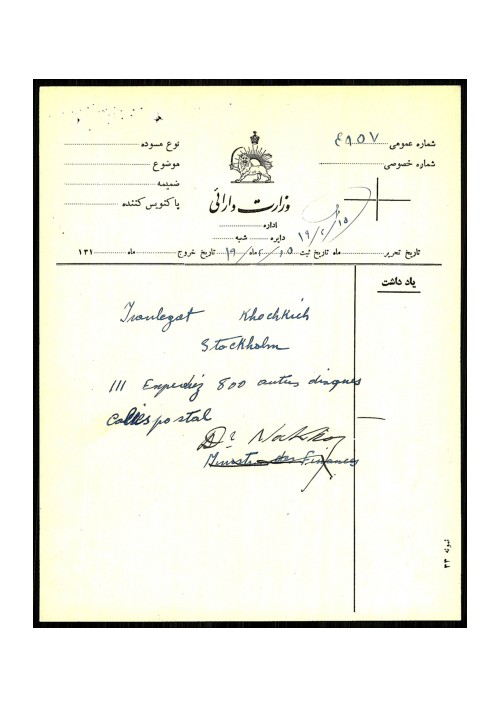 شماره عمومی ۴۸۵۷
شماره خصوصی
نوع مسوده
موضوع
ضمیمه
پاکنویس کننده
وزارت دارائی
اداره
دایره شعبه
۱۹/۲/۱۵
تاریخ تحریر ماه تاریخ ثبت ماه ۱۹ تاریخ خروج ماه ۱۳۱
یاد داشت
Iranlegat Khochkich
Stockholm
111 Expediez 800 autres disques
Colis postal
Dr
Ministre des Finances
نمونه ۳۳